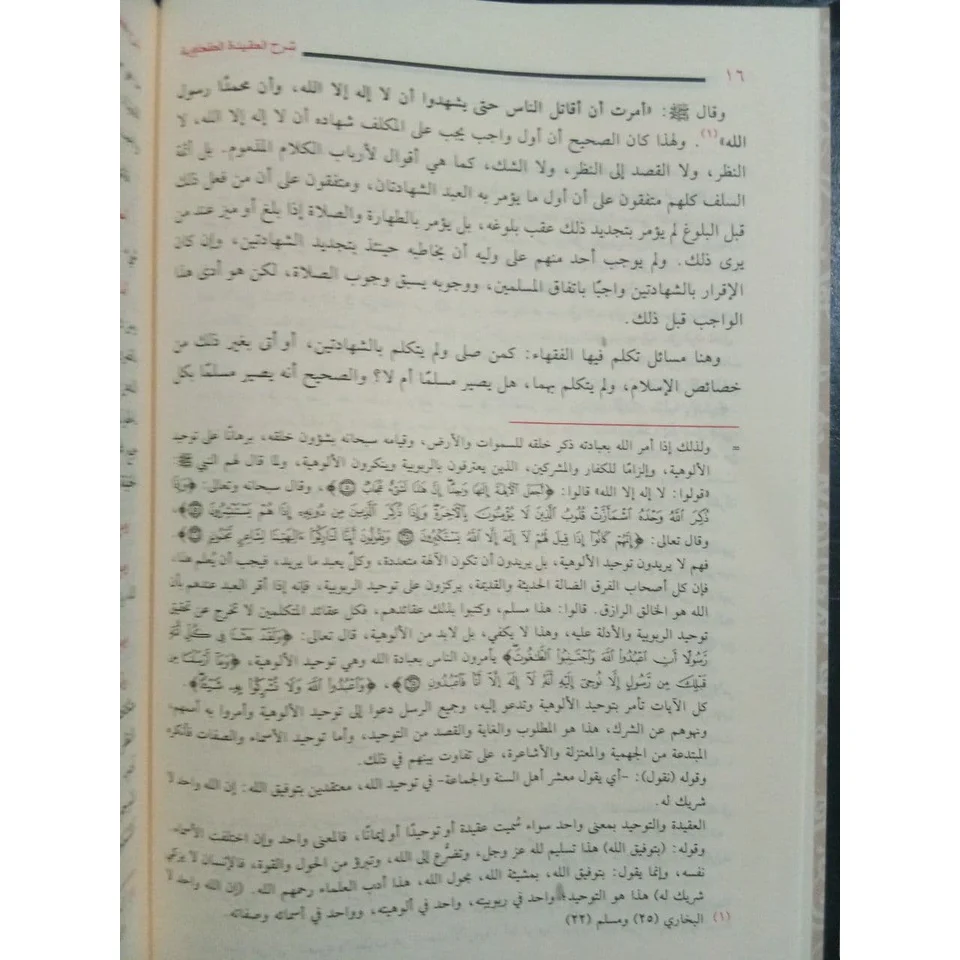 شرح العقيدة الطحاوية
١٦
وقال ﷺ: «أمرت أن أقاتل الناس حتى يشهدوا أن لا إله إلا الله، وأن محمدًا رسول
الله»(١). ولهذا كان الصحيح أن أول واجب يجب على المكلف شهاده أن لا إله إلا الله، لا
النظر، ولا القصد إلى النظر، ولا الشك، كما هي أقوال لأرباب الكلام المذموم. بل أئمة
السلف كلهم متفقون على أن أول ما يؤمر به العبد الشهادتان، ومتفقون على أن من فعل ذلك
قبل البلوغ لم يؤمر بتجديد ذلك عقب بلوغه، بل يؤمر بالطهارة والصلاة إذا بلغ أو ميز عند من
يرى ذلك. ولم يوجب أحد منهم على وليه أن يخاطبه حينئذ بتجديد الشهادتين، وإن كان
الإقرار بالشهادتين واجبًا باتفاق المسلمين، ووجوبه يسبق وجوب الصلاة، لكن هو أدى هذا
الواجب قبل ذلك.
وهنا مسائل تكلم فيها الفقهاء: كمن صلى ولم يتكلم بالشهادتين، أو أتى بغير ذلك من
خصائص الإسلام، ولم يتكلم بهما، هل يصير مسلمًا أم لا؟ والصحيح أنه يصير مسلمًا بكل
= ولذلك إذا أمر الله بعبادته ذكر خلقه للسموات والأرض، وقيامه سبحانه بشؤون خلقه، برهانًا على توحيد
الألوهية، وإلزامًا للكفار والمشركين، الذين يعترفون بالربوبية وينكرون الألوهية، ولما قال لهم النبي ﷺ:
«قولوا: لا إله إلا الله» قالوا: ﴿أَجَعَلَ ٱلْآلِهَةَ إِلَٰهًا وَٰحِدًا إِنَّ هَٰذَا لَشَىْءٌ عُجَابٌ ۝٥﴾، وقال سبحانه وتعالى: ﴿وَإِذَا
ذُكِرَ ٱللَّهُ وَحْدَهُ ٱشْمَأَزَّتْ قُلُوبُ ٱلَّذِينَ لَا يُؤْمِنُونَ بِٱلْآخِرَةِ وَإِذَا ذُكِرَ ٱلَّذِينَ مِن دُونِهِۦٓ إِذَا هُمْ يَسْتَبْشِرُونَ ۝٤٥﴾،
وقال تعالى: ﴿إِنَّهُمْ كَانُوٓا۟ إِذَا قِيلَ لَهُمْ لَآ إِلَٰهَ إِلَّا ٱللَّهُ يَسْتَكْبِرُونَ ۝٣٥ وَيَقُولُونَ أَئِنَّا لَتَارِكُوٓا۟ ءَالِهَتِنَا لِشَاعِرٍ مَّجْنُونٍۭ ۝٣٦﴾،
فهم لا يريدون توحيد الألوهية، بل يريدون أن تكون الآلهة متعددة، وكلٌ يعبد ما يريد، فيجب أن يُعلم هذا،
فإن كل أصحاب الفرق الضالة الحديثة والقديمة، يركزون على توحيد الربوبية، فإنه إذا أقر العبد عندهم بأن
الله هو الخالق الرازق. قالوا: هذا مسلم، وكتبوا بذلك عقائدهم، فكل عقائد المتكلمين لا تخرج عن تحقيق
توحيد الربوبية والأدلة عليه، وهذا لا يكفي، بل لابد من الألوهية، قال تعالى: ﴿وَلَقَدْ بَعَثْنَا فِى كُلِّ أُمَّةٍ
رَّسُولًا أَنِ ٱعْبُدُوا۟ ٱللَّهَ وَٱجْتَنِبُوا۟ ٱلطَّٰغُوتَ﴾ يأمرون الناس بعبادة الله وهي توحيد الألوهية، ﴿وَمَآ أَرْسَلْنَا مِن
قَبْلِكَ مِن رَّسُولٍ إِلَّا نُوحِىٓ إِلَيْهِ أَنَّهُۥ لَآ إِلَٰهَ إِلَّآ أَنَا۠ فَٱعْبُدُونِ ۝٢٥﴾، ﴿وَٱعْبُدُوا۟ ٱللَّهَ وَلَا تُشْرِكُوا۟ بِهِۦ شَيْـًٔا﴾.
كل الآيات تأمر بتوحيد الألوهية وتدعو إليه، وجميع الرسل دعوا إلى توحيد الألوهية وأمروا به أممهم،
ونهوهم عن الشرك، هذا هو المطلوب والغاية والقصد من التوحيد، وأما توحيد الأسماء والصفات فأنكره
المبتدعة من الجهمية والمعتزلة والأشاعرة، على تفاوت بينهم في ذلك.
وقوله (نقول): -أي يقول معشر أهل السنة والجماعة- في توحيد الله، معتقدين بتوفيق الله: إن الله واحد لا
شريك له.
العقيدة والتوحيد بمعنى واحد سواء سُميت عقيدة أو توحيدًا أو إيمانًا، فالمعنى واحد وإن اختلفت الأسماء.
وقوله: (بتوفيق الله) هذا تسليم لله عز وجل، وتضرُّع إلى الله، وتبرؤ من الحول والقوة، فالإنسان لا يزكي
نفسه، وإنما يقول: بتوفيق الله، بمشيئة الله، بحول الله، هذا أدب العلماء رحمهم الله. (إن الله واحد لا
شريك له) هذا هو التوحيد، واحد في ربوبيته، واحد في ألوهيته، وواحد في أسمائه وصفاته.
(١) البخاري (٢٥) ومسلم (٢٢)